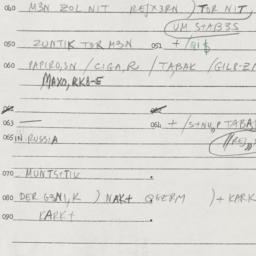 040 M3N ZOL NIT REJX3RN) TOR NIT,
UM STAB3S
050 ZUNTIK TOR M3N 052 + /GI$
060 PAPIROSN / CIGA,R / TABAK /GILR-ZI
MAXO,RKA-E
063 064 + /S+NU,P TABA
065 IN RUSSIA
070 MUNTSTIK
080 DER G3NI,K ) NAK+ GERM )+ KARK
090 KARK+